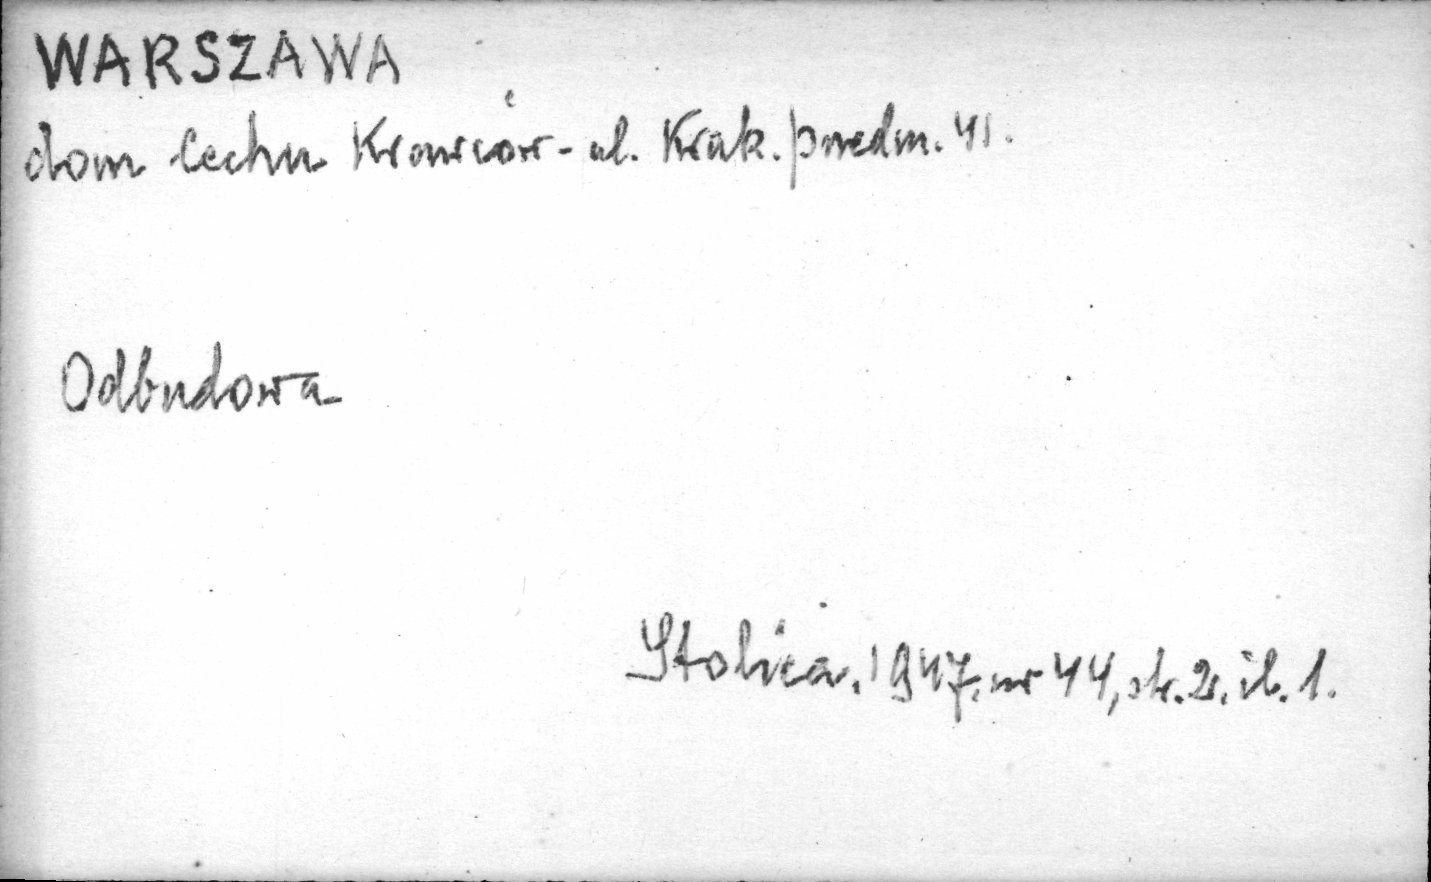 WARSZAWA
dom Cechu Krawców - ul. Krak. przedm. 41.
Odbudowa
Stolica. 1947. nr 44, str. 2. il. 1.